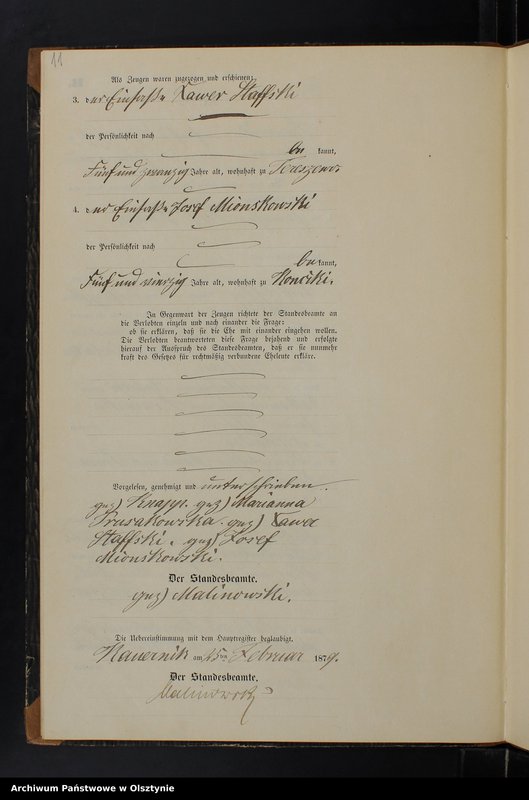 11
Als Zeugen waren zugezogen und erschienen:
3. der Einsaße Xawer Staffski
der Persönlichkeit nach
be kannt,
Fünf und zwanzig Jahre alt, wohnhaft zu Tereszewo
4. der Einsaße Josef Mionskowski
der Persönlichkeit nach
be kannt,
Fünf und vierzig Jahre alt, wohnhaft zu
In Gegenwart der Zeugen richtete der Standesbeamte an
die Verlobten einzeln und nach einander die Frage:
ob sie erklären, daß sie die Ehe mit einander eingehen wollen.
Die Verlobten beantworteten diese Frage bejahend und erfolgte
hierauf der Ausspruch des Standesbeamten, daß er sie nunmehr
kraft des Gesetzes für rechtmäßig verbundene Eheleute erkläre.
Vorgelesen, genehmigt und unterschrieben.
gez) Knapp. gez) Marianna
Prusakowska. gez) Xawer
Staffski. gez) Josef
Mionskowski.
Der Standesbeamte.
gez) Malinowski.
Die Uebereinstimmung mit dem Hauptregister beglaubigt.
Nawernik am 15ten Februar 1879.
Der Standesbeamte.
Malinowski
Archiwum Państwowe w Olsztynie